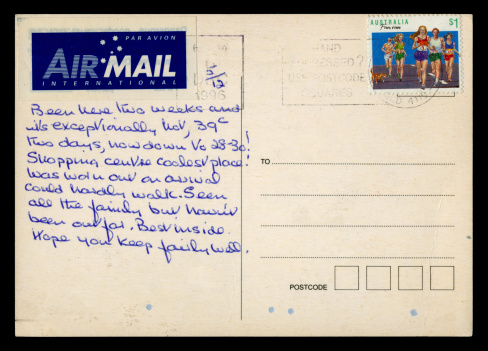 PAR AVION
AIR MAIL
INTERNATIONAL
AUSTRALIA $1
Fun Run
1995
POSTCODE
Been here two weeks and
its exceptionally hot, 39°c
two days, now down to 28-30!
Shopping centre coolest place!
Was worn out on arrival
could hardly walk. Seen
all the family but haven't
been out far. Best inside.
Hope you keep fairly well.
TO
POSTCODE